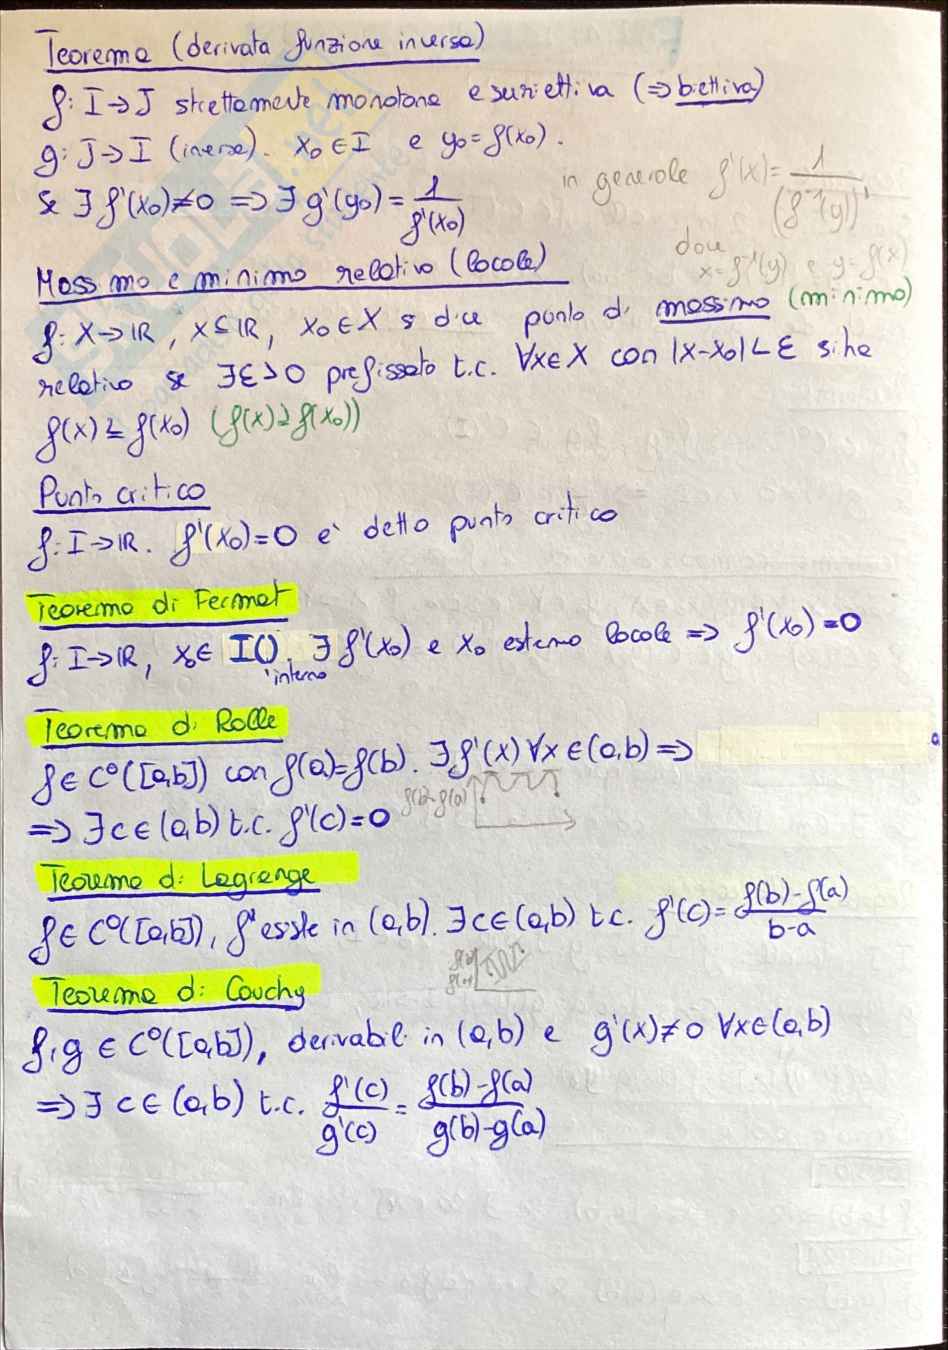 Teorema (derivata funzione inversa)
f: I→J strettamente monotona e suriettiva (⇒ biettiva)
g: J→I (inversa). x₀∈I e y₀=f(x₀).
in generale f'(x)= 1/(f⁻¹(y))'
se ∃ f'(x₀)≠0 ⇒ ∃ g'(y₀)= 1/f'(x₀)
dove
x=f⁻¹(y) e y=f(x)
Massimo e minimo relativo (locale)
f: X→ℝ, X⊆ℝ, x₀∈X si dice punto di massimo (minimo)
relativo se ∃ε>0 prefissato t.c. ∀x∈X con |x-x₀|<ε si ha
f(x)≤f(x₀) (f(x)≥f(x₀))
Punto critico
f: I→ℝ. f'(x₀)=0 è detto punto critico
Teorema di Fermat
f: I→ℝ, x₀∈ I(), ∃ f'(x₀) e x₀ estremo locale ⇒ f'(x₀)=0
interno
Teorema di Rolle
f∈C⁰([a,b]) con f(a)=f(b). ∃f'(x) ∀x∈(a,b) ⇒
f(b)=f(a)
⇒ ∃c∈(a,b) t.c. f'(c)=0
Teorema di Lagrange
f∈C⁰([a,b]), f' esiste in (a,b). ∃c∈(a,b) t.c. f'(c)= f(b)-f(a)/b-a
f(b)
f(a)
Teorema di Cauchy
f,g ∈ C⁰([a,b]), derivabili in (a,b) e g'(x)≠0 ∀x∈(a,b)
⇒ ∃ c∈(a,b) t.c. f'(c)/g'(c) = f(b)-f(a)/g(b)-g(a)